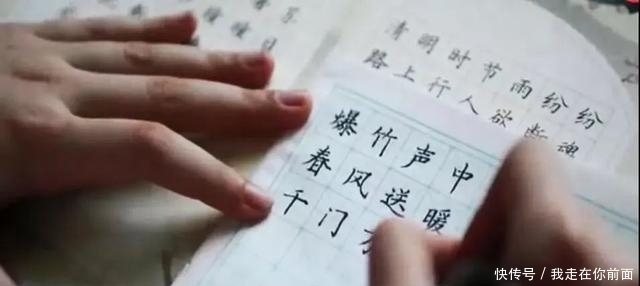 清明时节雨纷纷
路上行人欲断魂
爆竹声中
春风送暖
千门
快传号 / 我走在你前面